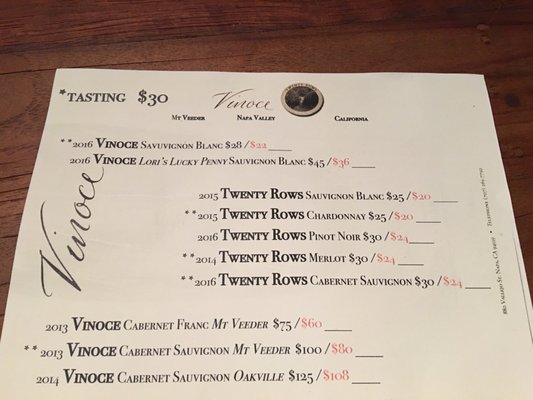 *TASTING $30
Vinoce
MT VEEDER NAPA VALLEY CALIFORNIA
**2016 VINOCE SAVUVIGNON BLANC $28/$22
2016 VINOCE LORI'S LUCKY PENNY SAUVIGNON BLANC $45/$36
2015 TWENTY ROWS SAUVIGNON BLANC $25/$20
**2015 TWENTY ROWS CHARDONNAY $25/$20
2016 TWENTY ROWS PINOT NOIR $30/$24
**2014 TWENTY ROWS MERLOT $30/$24
**2016 TWENTY ROWS CABERNET SAUVIGNON $30/$24
2013 VINOCE CABERNET FRANC MT VEEDER $75/$60
**2013 VINOCE CABERNET SAUVIGNON MT VEEDER $100/$80
2014 VINOCE CABERNET SAUVIGNON OAKVILLE $125/$108
Vinoce
880 VALLEJO ST. NAPA, CA • TELEPHONE